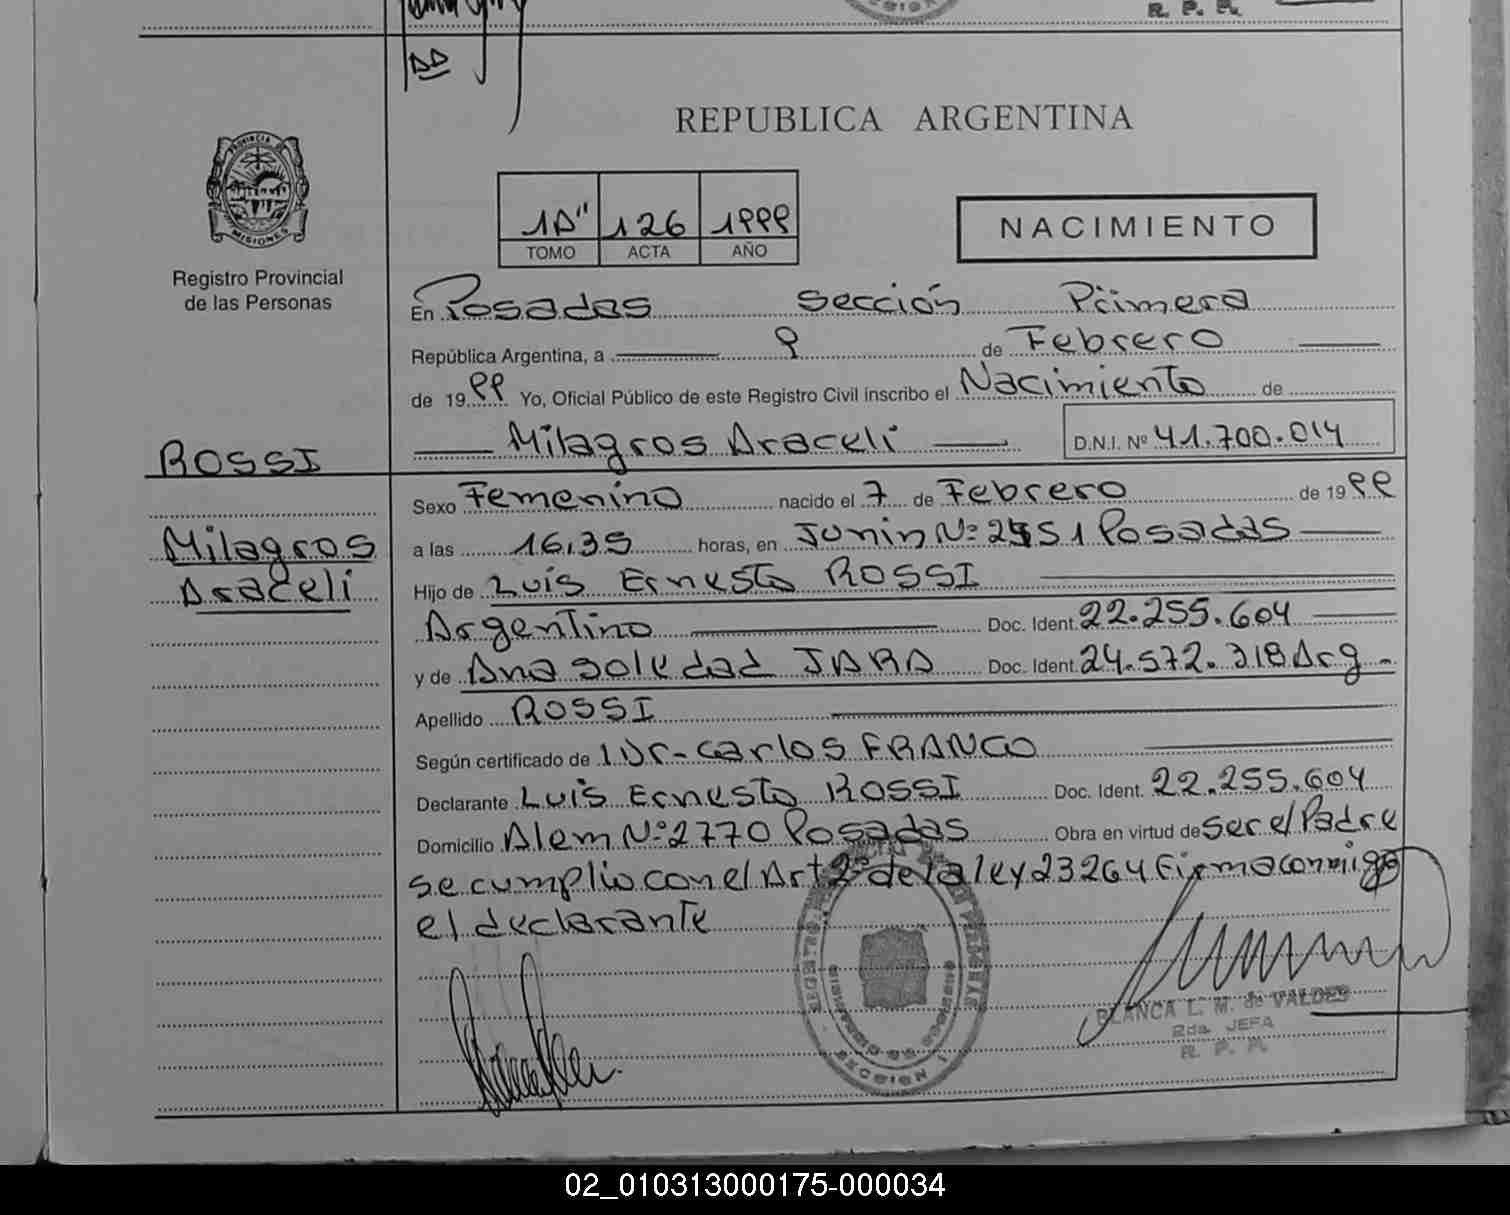 R. P. P.
REPUBLICA ARGENTINA
PROVINCIA DE
MISIONES
Registro Provincial
de las Personas
1A" 126 1999
TOMO ACTA AÑO
NACIMIENTO
En Posadas Sección Primera
República Argentina, a 9 de Febrero
de 1999 Yo, Oficial Público de este Registro Civil inscribo el Nacimiento de
Milagros Araceli D.N.I. Nº 41.700.014
ROSSI
Milagros
Araceli
Sexo Femenino nacido el 7 de Febrero de 1999
a las 16,35 horas, en Junin Nº Posadas
Hijo de Luis Ernesto ROSSI
Argentino Doc. Ident. 22.255.604
y de Ana Soledad JARA Doc. Ident. 24.572.318 Arg.
Apellido ROSSI
Según certificado de Dr- Carlos FRANCO
Declarante Luis Ernesto ROSSI Doc. Ident. 22.255.604
Domicilio Alem Nº 2770 Posadas Obra en virtud de ser el Padre
se cumplio con el Art 2º de la ley 23264 Firma conmigo
el declarante
SECCION 1
BLANCA L. M. de VALDES
2da. JEFA
R. P. P.
02_010313000175-000034